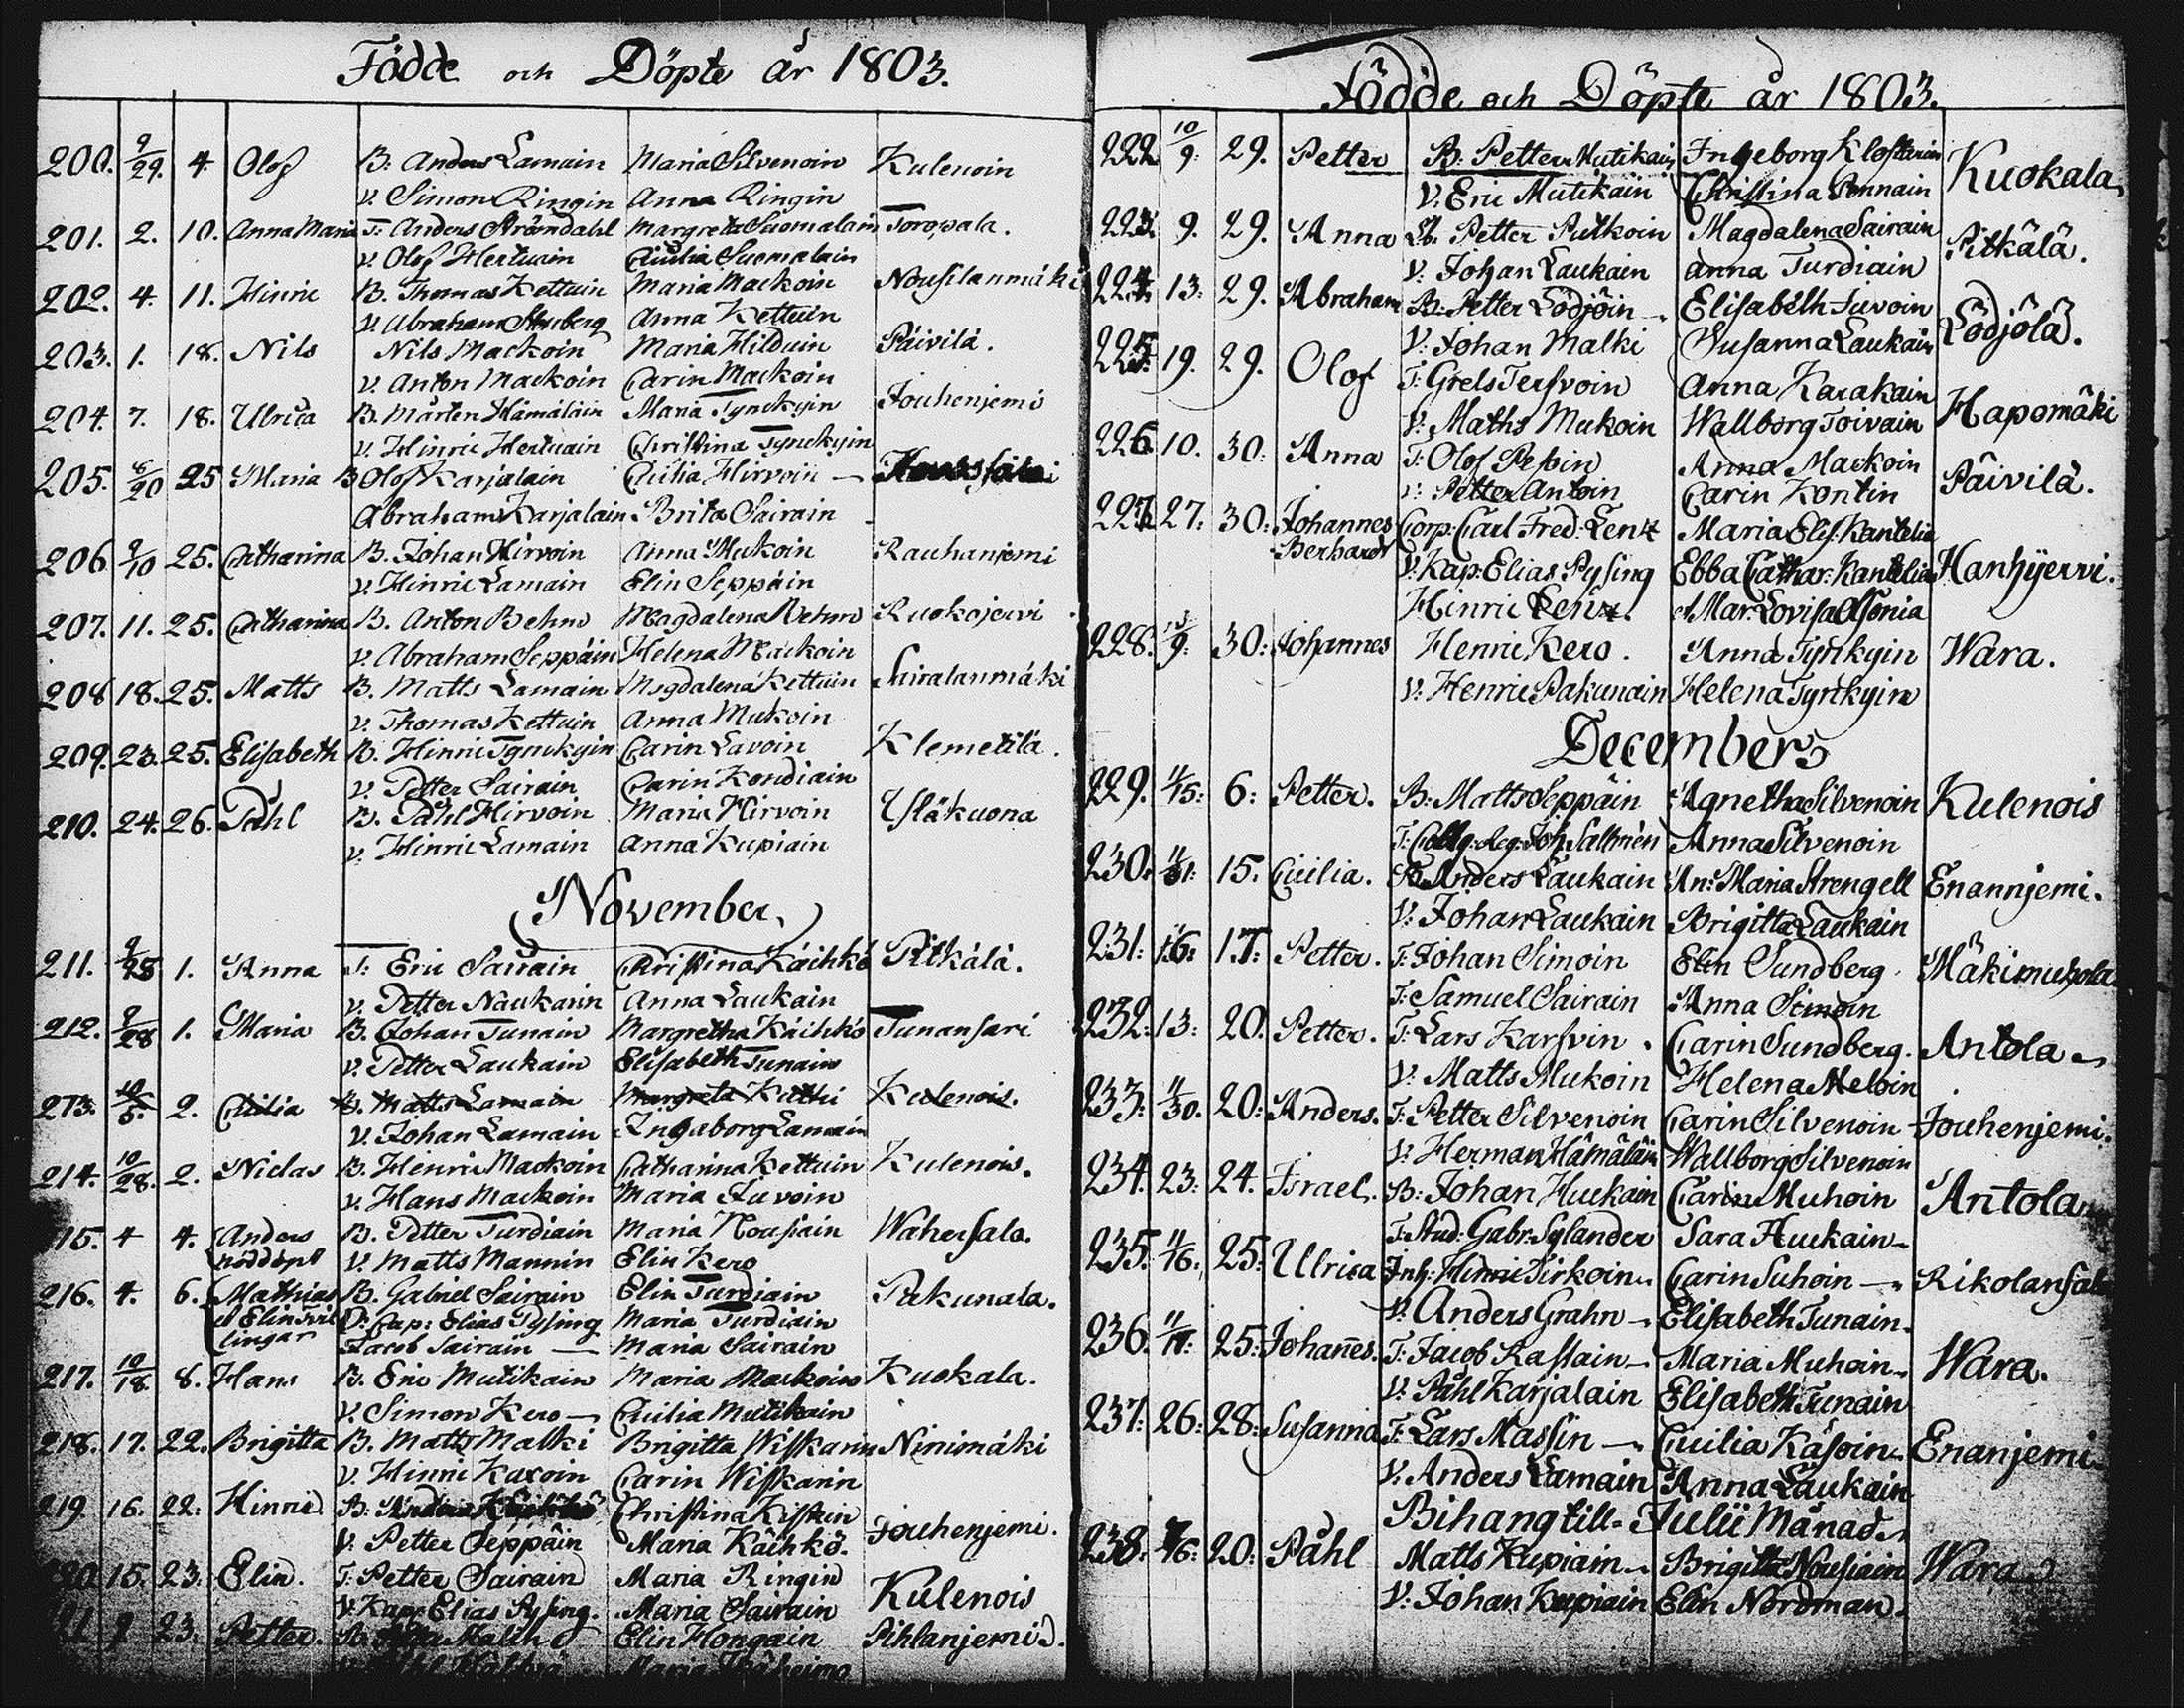 Födde och Döpte år 1803.
200. 9/29. 4. Olof B. Anders Lamain Maria Silvenoin Kulenoin
V. Simon Ringin Anna Ringin
201. 2. 10. Anna Maria T. Anders Strömdahl Margreta Suomalain Toropala.
V. Olof Hertuain Cicilia Suomalain
202. 4. 11. Hinric B. Thomas Kettuin Maria Mackoin Nousilanmäki
V. Abraham Anna Kettuin
203. 1. 18. Nils Nils Mackoin Maria Hilduin Päivilä.
V. Anton Mackoin Carin Mackoin
204. 7. 18. Ulrica B. Mårten Hämäläin Maria Tynckyin Jouhenjemi
V. Hinric Hertuain Christina Tynckyin
205. 8/20 25 Maria B Olof Karjalain Cicilia Hirvoin
Abraham Karjalain Brita Sairain
206. 9/10 25. Catharina B. Johan Hirvoin Anna Mukoin Rauhanjemi
V. Hinric Lamain Elin Seppäin
207. 11. 25. Catharina B. Anton Behm Magdalena Behm Ruokojervi
V. Abraham Seppäin Helena Mackoin
208 18. 25. Matts B. Matts Lamain Magdalena Kettuin Sairalanmäki
V. Thomas Kettuin Anna Mukoin
209. 23. 25. Elisabeth B. Hinric Tynckyin Carin Savoin Klemetilä.
V. Petter Sairain Carin Kondiain
210. 24. 26. Påhl B. Påhl Hirvoin Maria Hirvoin Ylläkuona
V. Hinric Lamain Anna Kupiain
November
211. 9/28 1. Anna T. Eric Sairain Christina Käihkö Pitkälä.
V. Petter Naukarin Anna Laukain
212. 9/28 1. Maria B. Johan Tunain Margretha Käihkö Tunansari
V. Petter Laukain Elisabeth Tunain
213. 10/5. 2. Cicilia B. Matts Lamain Margreta Kuthi Kulenois.
V. Johan Lamain Ingeborg Lamain
214. 10/28. 2. Niclas B. Hinric Mackoin Catharina Kettuin Kulenois.
V. Hans Mackoin Maria Juvoin
15. 4 4. Anders B. Petter Turdiain Maria Nousiain Wahersala.
nöddöpt V. Matts Mannin Elin Kero
216. 4. 6. Mathias B. Gabriel Sairain Elin Turdiain Pakunala.
et Elin tvil V. Cap: Elias Pysing Maria Turdiain
lingar Jacob Sairain Maria Sairain
217. 10/18. 8. Hans B. Eric Mutikain Maria Mackoin Kuokala.
V. Simon Kero Cicilia Mutikain
218. 17. 22. Brigitta B. Matts Malki Brigitta Wisskarin Ninimäki
V. Hinric Karoin Carin Wisskarin
219 16. 22: Hinric B. Anders Christina Kisskin Jouhenjemi.
V. Petter Seppäin Maria Käihkö.
20 15. 23. Elin. T. Petter Sairain Maria Ringin Kulenois
V. Kap: Elias Pysing. Maria Sairain
21 9 23. Petter. B. Malin Elin Hongain Pihlanjemi.
Maria
Födde och Döpte år 1803.
222. 10/9: 29. Petter B. Petter Mutikain Ingeborg Klosterin Kuokala
V. Eric Mutikain Christina Pennain
223. 9. 29. Anna Petter Putkoin Magdalena Sairain Pitkälä.
V. Johan Laukain Anna Turdiain
224. 13: 29. Abraham B: Petter Lödjöin Elisabeth Juvoin Lödjölä.
V: Johan Malki Susanna Laukain
225. 19. 29. Olof T: Grels Tersvoin Anna Karakain Hapomäki
V: Maths Mukoin Wallborg Toivain
226 10. 30: Anna T: Olof Pessin Anna Mackoin Päivilä.
V: Petter Antoin Carin Kontin
227. 27: 30: Johannes Corp: Carl Fred: Lentz Maria Elis: Kantelia Hanhijervi.
Berhard V: Kap: Elias Pysing Ebba Cathar: Kantelia
Hinric Lentz. et Mar: Lovisa Alsonia
228. 9: 30: Johannes Henric Kero. Anna Tynkyin Wara.
V: Henric Pakunain Helena Tynkyin
December
229. 11/15: 6: Petter. B: Matts Seppäin Agnetha Silvenoin Kulenois
T: Joh. Sallmén Anna Silvenoin
230. 11/31: 15. Cicilia. B. Anders Laukain An: Maria Strengell Enannjemi.
V: Johan Laukain Brigitta Laukain
231: 16: 17: Petter. T: Johan Simoin Elin Sundberg Mäkimuhola
T: Samuel Sairain Anna Simoin
232: 13: 20. Petter. T: Lars Karsvin Carin Sundberg. Antola
V: Matts Mukoin Helena Meloin
233: 11/30. 20: Anders. T: Petter Silvenoin Carin Silvenoin Jouhenjemi.
V: Herman Hämäläin Wallborg Silvenoin
234. 23: 24. Israel. B: Johan Huckain Carin Muhoin Antola
T: Stud: Gabr: Sylander Sara Huckain
235. 11/16. 25: Ulrica Inh: Hinric Pirkoin Carin Suhoin Rikolansa
V: Anders Grahn Elisabeth Tunain
236. 11/17: 25: Johannes. T: Jacob Rassain Maria Muhoin Wara.
V: Påhl Karjalain Elisabeth Tunain
237: 26: 28: Susanna T: Lars Massin Cicilia Käsoin Enanjemi
V: Anders Lamain Anna Laukain
Bihang till Julii Månad
238: 7/16: 20: Påhl Matts Kupiain Brigitta Nousiain Wara
V: Johan Kupiain Elin Nordman.